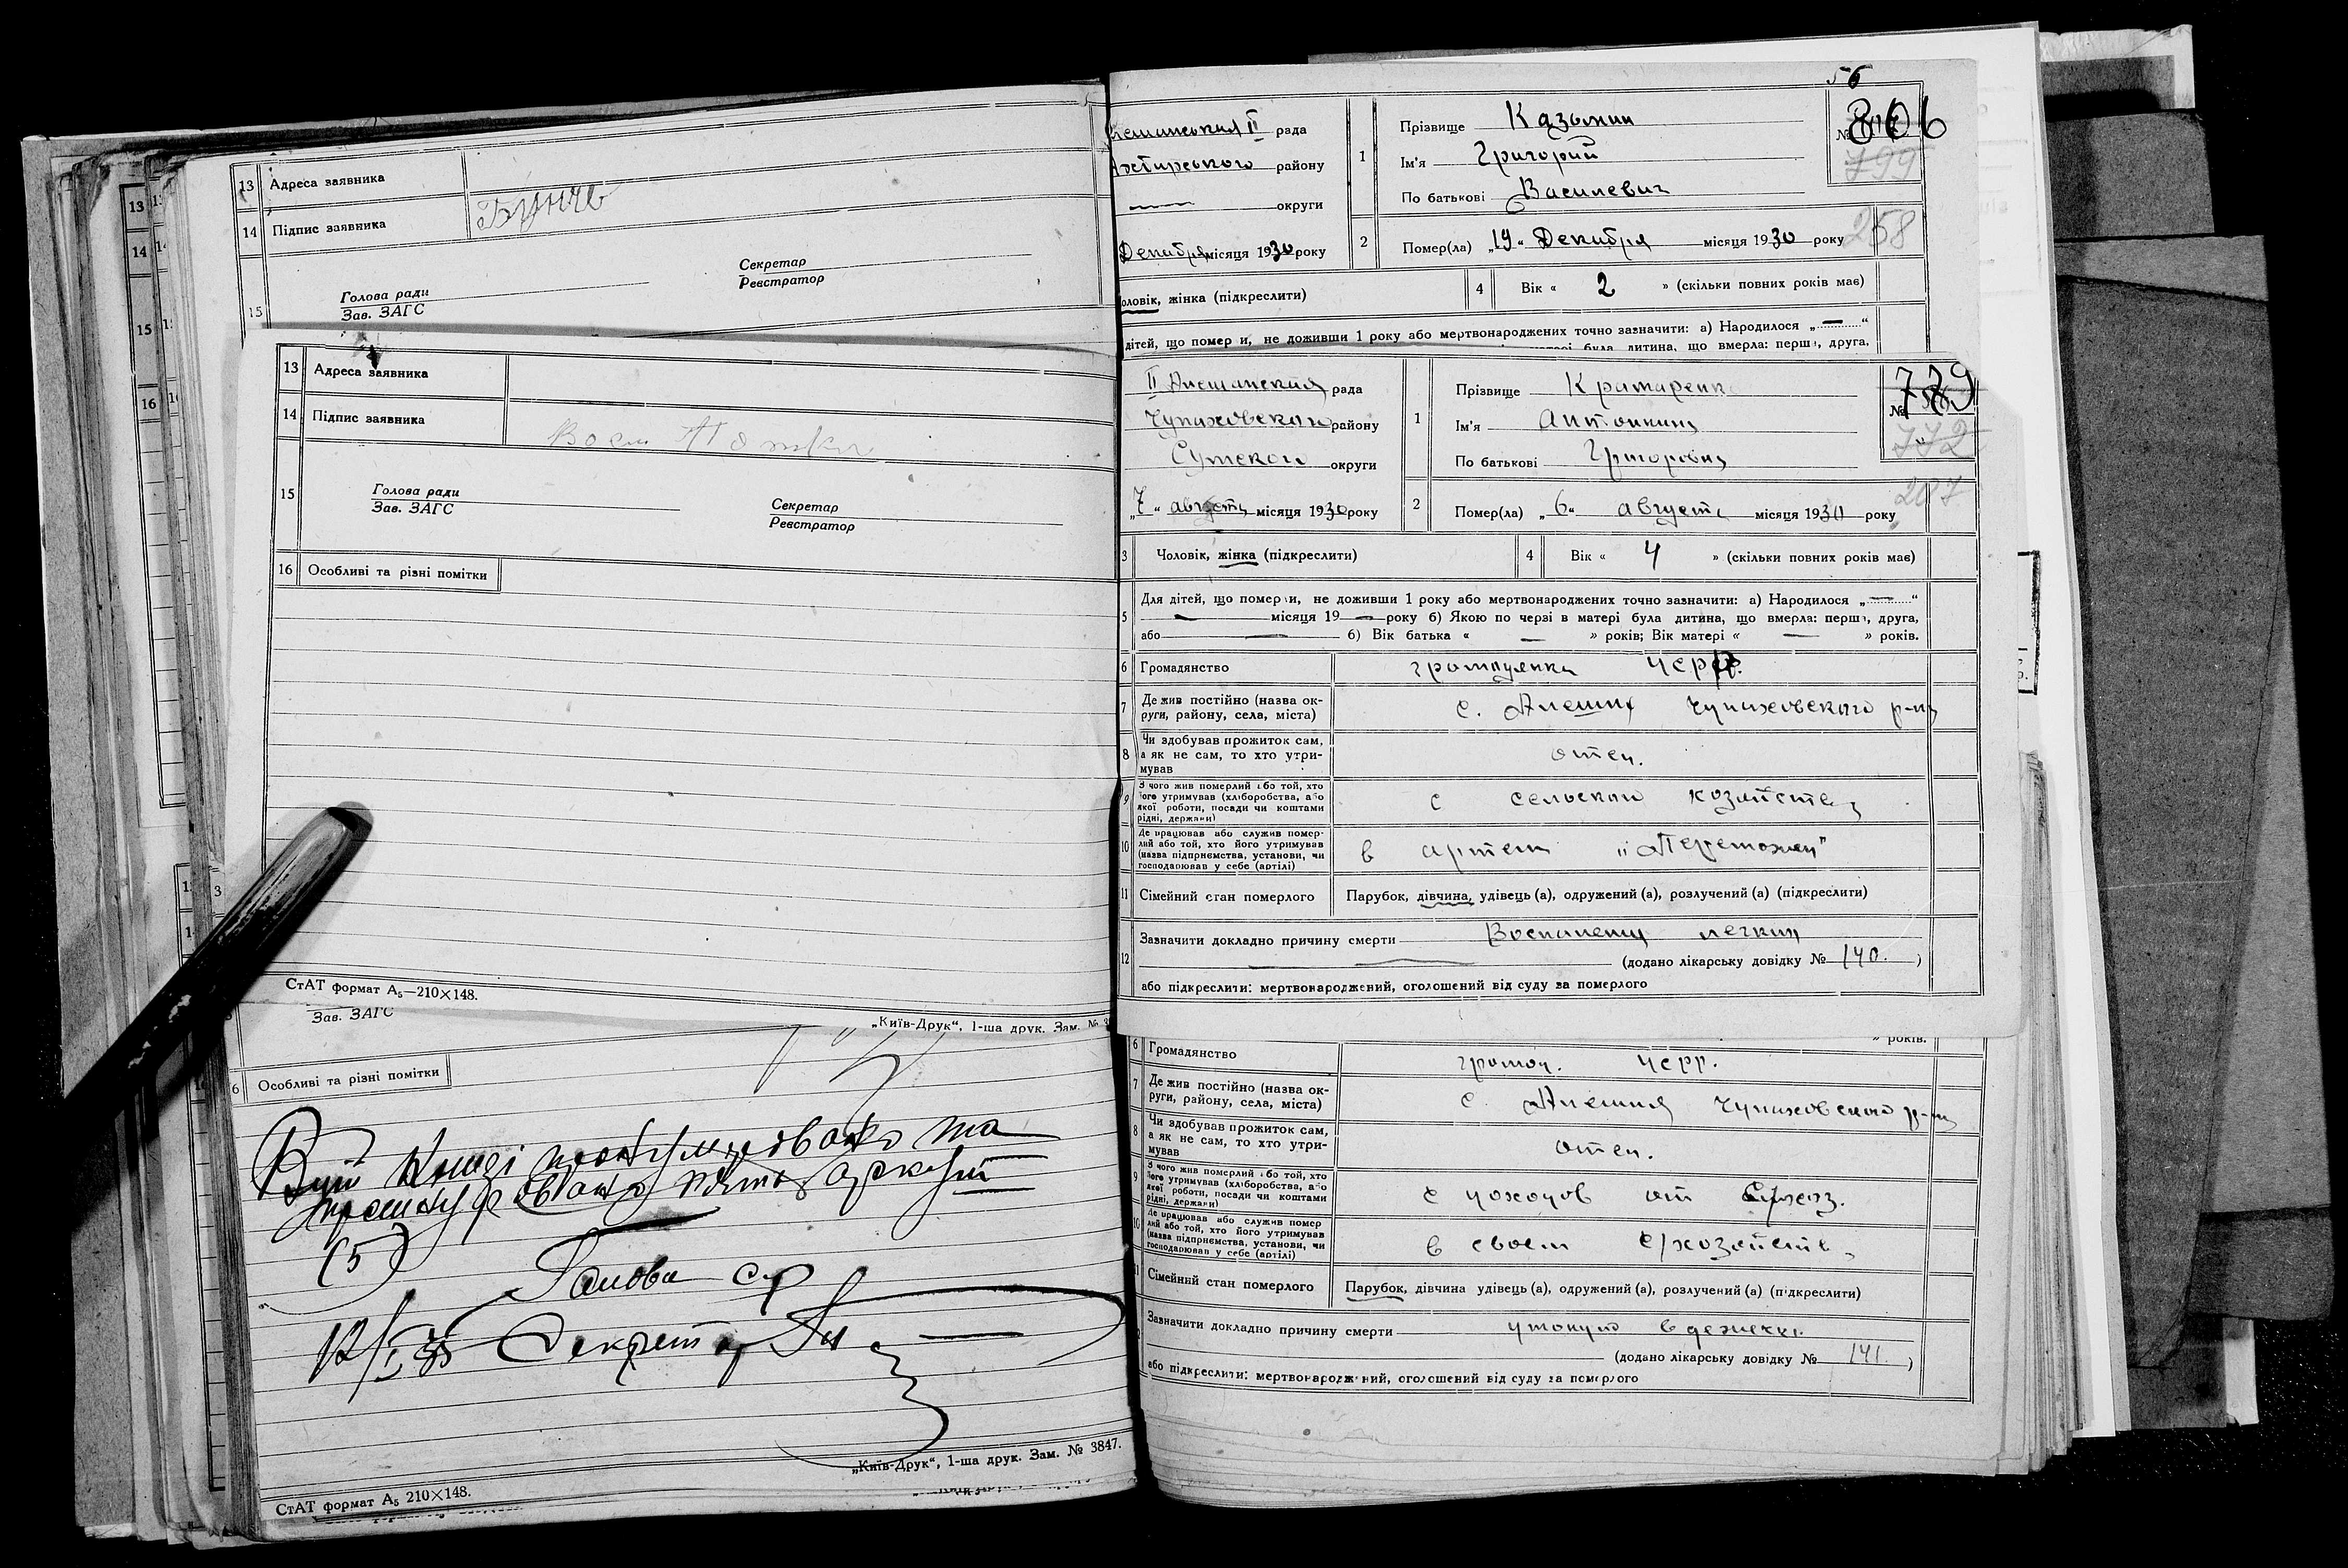 13 Адреса заявника
14 Підпис заявника
15
Голова ради
Зав. ЗАГС
Секретар
Реєстратор
13 Адреса заявника
14 Підпис заявника
15
Голова ради
Зав. ЗАГС
Секретар
Реєстратор
16 Особливі та різні помітки
СтАТ формат А₅—210×148.
„Київ-Друк“, 1-ша друк. Зам. №
Зав. ЗАГС
6 Особливі та різні помітки
В цій книзі пронумеровано та
аркушів
(5)
Голова с/р
Секретар
„Київ-Друк“, 1-ша друк. Зам. № 3847.
СтАТ формат А₅ 210×148.
56
II рада
району
— округи
Декабря місяця 1930 року
1 Прізвище Казьмин
Ім'я Григорий
По батькові Василевич
№ 806
799
2 Помер(ла) „19“ Декабря місяця 1930 року
258
оловік, жінка (підкреслити)
4 Вік « 2 » (скільки повних років має)
дітей, що помер и, не доживши 1 року або мертвонароджених точно зазначити: а) Народилося „—“
II Алешанская рада
Чупаховского району
Сумской округи
„7“ августа місяця 1930 року
1 Прізвище Крамаренк
Ім'я Антонина
По батькові Григоровна
№ 779
772
2 Помер(ла) „6“ августа місяця 1930 року
207
3 Чоловік, жінка (підкреслити)
4 Вік « 4 » (скільки повних років має)
5 Для дітей, що помер и, не доживши 1 року або мертвонароджених точно зазначити: а) Народилося „—“
— місяця 19 — року б) Якою по черзі в матері була дитина, що вмерла: перша, друга,
або — б) Вік батька « — » років; Вік матері « — » років.
6 Громадянство громадянка УСРР.
7 Де жив постійно (назва округи, району, села, міста) с. Алешня Чупаховского р-на
8 Чи здобував прожиток сам, а як не сам, то хто утримував отец.
9 З чого жив померлий або той, хто його утримував (хліборобства, або якої роботи, посади чи коштами рідні, держави) с сельского хозяйства
10 Де працював або служив померлий або той, хто його утримував (назва підприємства, установи, чи господарював у себе (артілі) в артели „Переможец“
11 Сімейний стан померлого Парубок, дівчина, удівець (а), одружений (а), розлучений (а) (підкреслити)
12 Зазначити докладно причину смерти Воспаление легких
(додано лікарську довідку № 140. )
або підкреслити: мертвонароджений, оголошений від суду за померлого
» років.
6 Громадянство громад. УСРР.
7 Де жив постійно (назва округи, району, села, міста) с. Алешня Чупаховского р-на
8 Чи здобував прожиток сам, а як не сам, то хто утримував отец.
9 З чого жив померлий або той, хто його утримував (хліборобства, або якої роботи, посади чи коштами рідні, держави) с доходов от с/хоз.
10 Де працював або служив помер лий або той, хто його утримував (назва підприємства, установи, чи господарював у себе (артілі) в своем с/хозяйстве
Сімейний стан померлого Парубок, дівчина удівець (а), одружений (а), розлучений (а) (підкреслити)
Зазначити докладно причину смерти утонул
(додано лікарську довідку № 141. )
або підкреслити: мертвонароджений, оголошений від суду за померлого